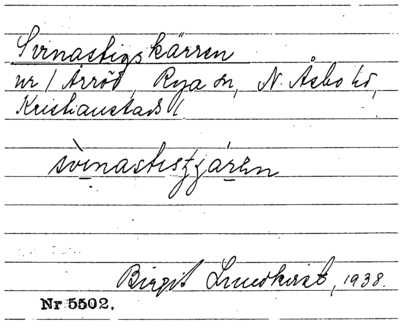 Svinastigskärren
nr 1 Arröd, Rya sn, N. Åsbo hd,
Kristianstads l
svinastistjären
Birgit Lundkvist, 1938.
Nr 5502.